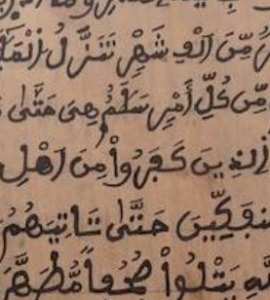 مِّنَ اَلْفِ شَهْرٍ تَنَزَّلُ
مِّن كُلِّ أَمْرٍ سَلَٰمٌ هِيَ حَتَّىٰ
اَلذِينَ كَفَرُواْ مِنَ اَهْلِ
مُنفَكِّينَ حَتَّىٰ تَاتِيَهُمُ
اَللَّهِ يَتْلُواْ صُحُفاً مُّطَهَّرَ